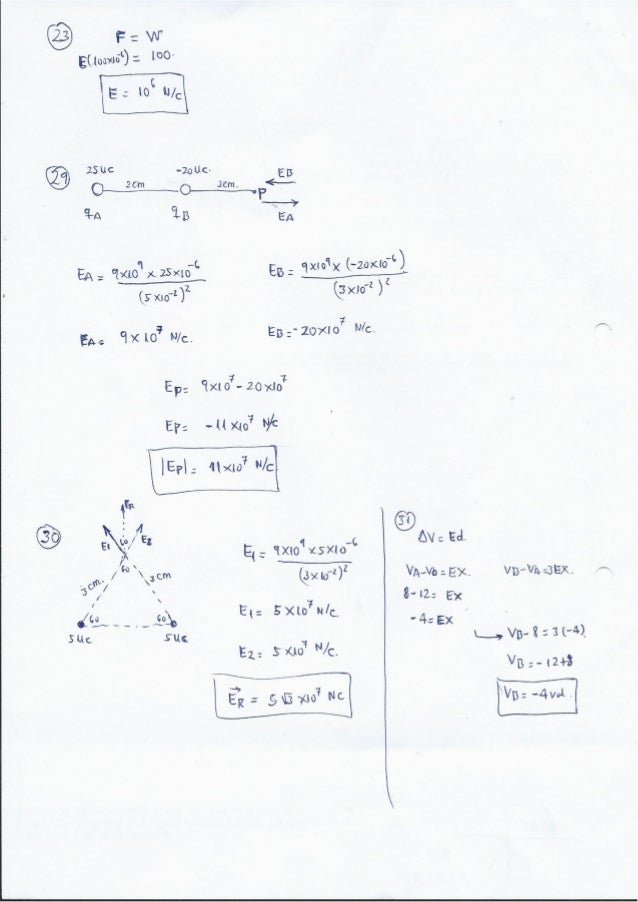 23
F = W
E(100x10⁻⁶) = 100.
E = 10⁶ N/C
29
25uc -20uc. EB
2cm 3cm. P
qA qB EA
EA = 9x10⁹ x 25x10⁻⁶ / (5x10⁻²)²
EB = 9x10⁹ x (-20x10⁻⁶) / (3x10⁻²)²
EA = 9x10⁷ N/c.
EB = -20x10⁷ N/c.
Ep = 9x10⁷ - 20x10⁷
EP = -11x10⁷ N/c
|EP| = 11x10⁷ N/C
30
ER
E1 60 E2
60
3cm. 3cm
60 60
5uc 5uc
E1 = 9x10⁹ x 5x10⁻⁶ / (3x10⁻²)²
E1 = 5x10⁷ N/c.
E2 = 5x10⁷ N/c.
ER = 5√3 x10⁷ NC
31
ΔV = Ed.
VA-V0 = EX. VB-VA = 3EX.
8-12 = EX
-4 = EX
VB-8 = 3(-4)
VB = -12+8
VB = -4vol.